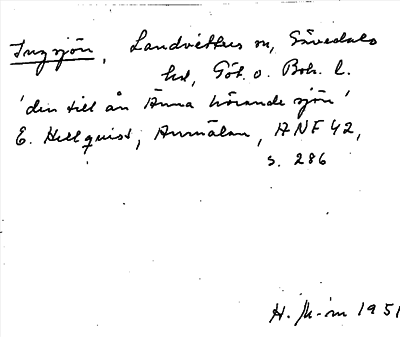 Ingsjön, Landvetters sn, Sävedals
hd, Göt. o. Boh. l.
'den till ån Änna hörande sjön'
E. Hellquist, Anmälan, ANF 42,
s. 286
1951